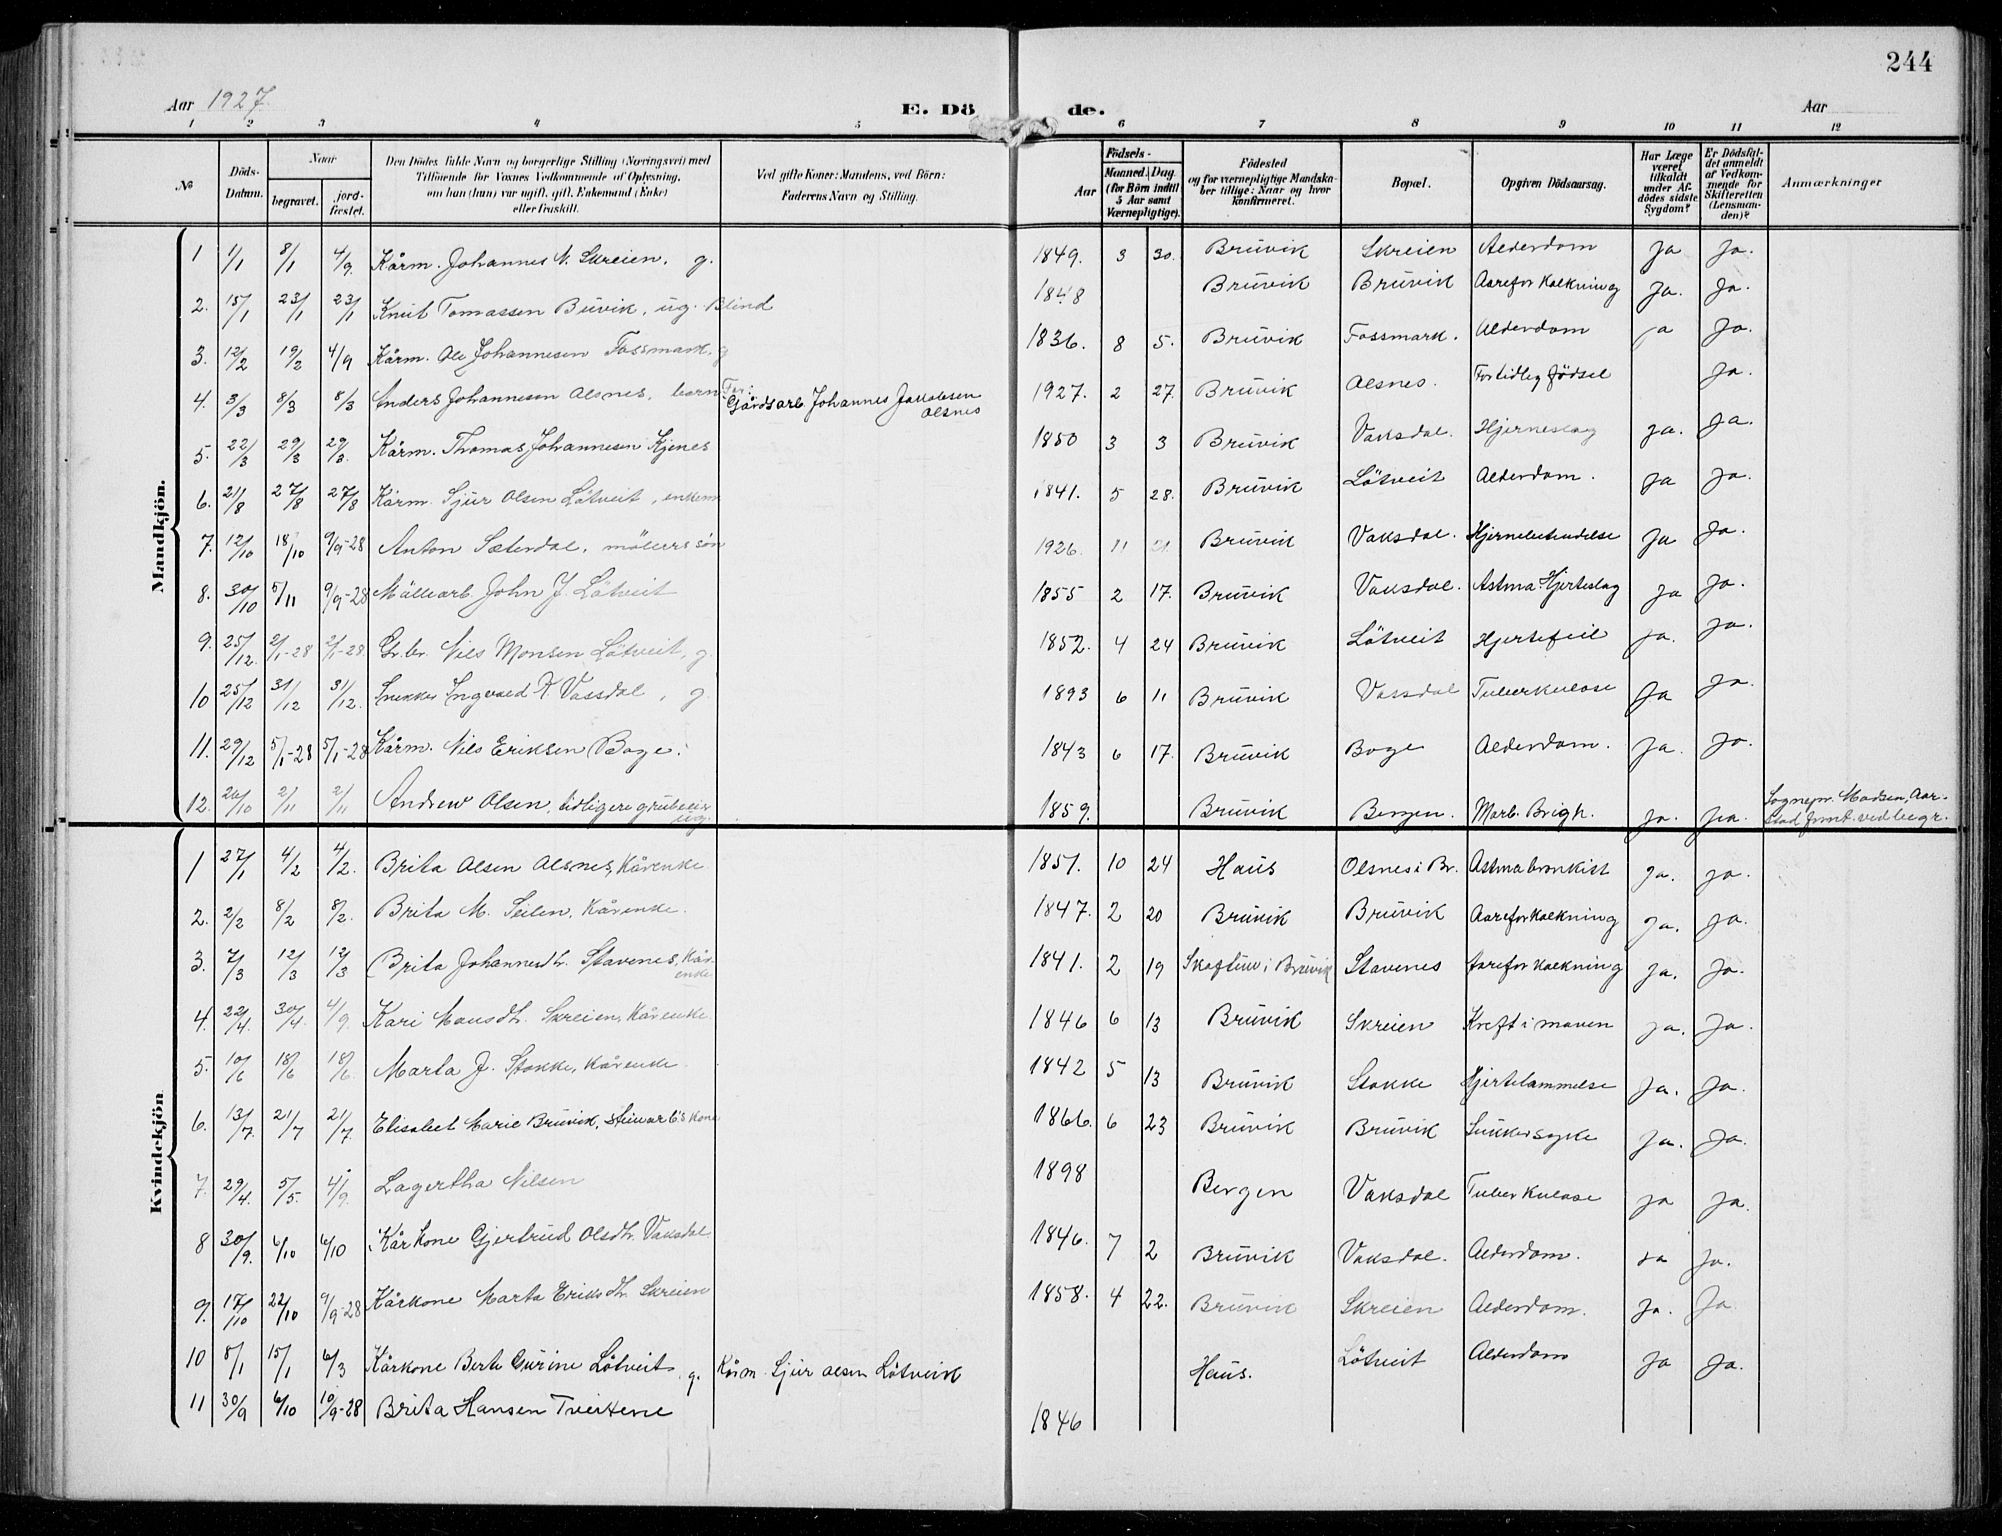 244
Aar 1927.
E. Dö de.
Aar
1 2 3 4 5 6 7 8 9 10 11 12
No
Döds-Datum.
Naar
begravet.
jord-fæstet.
Den Dödes fulde Navn og borgerlige Stilling (Næringsvei) med Tilföiende for Voxnes Vedkommende af Oplysning, om han (hun) var ugift, gift, Enkemand (Enke) eller fraskilt.
Ved gifte Koner: Mandens, ved Börn: Faderens Navn og Stilling.
Födsels-
Aar
Maaned. Dag. (for Börn indtil 5 Aar samt Værnepligtige).
Födested og for værnepligtige Mandskaber tillige: Naar og hvor konfirmeret.
Bopæl.
Opgiven Dödsaarsag.
Har Læge været tilkaldt under Afdödes sidste Sygdom?
Er Dödsfaldet anmeldt af Vedkommende for Skifteretten (Lensmanden)?
Anmærkninger
Mandkjön.
1 1/1 8/1 4/9. Kårm. Johannes N. Skreien, g. 1849. 3 30. Bruvik Skreien Alderdom Ja Ja.
2. 15/1 23/1 23/1 Knut Tomassen Buvik, ug. Blind 1848 Bruvik Bruvik Aareforkalkning Ja. Ja.
3. 12/2 19/2 4/9 Kårm. Ole Johannesen Fossmark, g 1836. 8 5. Bruvik Fossmark. Alderdom Ja Ja.
4. 3/3 8/3 8/3 Anders Johannesen Olsnes, barn Far: Gårdsarb. Johannes Jakobsen Olsnes 1927. 2 27. Bruvik Olsnes. For tidlig födsel Ja.
5. 22/3 29/3 29/3. Kårm. Thomas Johannesen Kjenes 1850 3 3 Bruvik Vaksdal. Hjerneslag Ja. Ja.
6. 21/8 27/8 27/8 Kårm. Sjur Olsen Lötveit, enkem 1841. 5 28. Bruvik Lötveit Alderdom. Ja Ja.
7. 12/10 18/10 9/9-28 Anton Sæterdal, möllerssön 1926. 11 21. Bruvik Vaksdal. Hjernebetendelse Ja Ja.
8. 30/10 5/11 9/9-28 Möllearb. John J. Lötveit 1855 2 17. Bruvik Vaksdal. Astma. Hjerteslag Ja Ja.
9. 25/12. 2/1-28 2/1-28 Gr.br. Nils Monsen Lötveit, g. 1852. 4 24 Bruvik Lötveit Hjertefeil Ja. Ja.
10 25/12 31/12 31/12. Snekker Ingvald K. Vassdal, g. 1893 6 11 Bruvik Vassdal Tuberkulose Ja Ja.
11. 29/12 5/1-28 5/1-28 Kårm. Nils Eriksen Boge. 1843 6 17. Bruvik Boge Alderdom. Ja. Ja.
12. 26/10 2/11 2/11 Andrew Olsen, tidligere grubeeier ug. 1859. Bruvik Bergen. Morb. Brigh. Ja. Ja. Sognepr. Madsen, Aarstad fornt. ved begr.
Kvindekjön
1 27/1 4/2 4/2. Brita Olsen Olsnes, Kårenke 1851. 10 24 Haus Olsnes i Br. Astma bronkitt Ja. Ja.
2. 2/2 8/2 8/2. Brita M. Seilen, Kårenke. 1847. 2 20 Bruvik Bruvik Aareforkalkning Ja. Ja.
3. 7/3 12/3 12/3 Brita Johannesdtr. Stavenes, Kårenke 1841. 2 19 Skaftun i Bruvik Stavenes Aareforkalkning Ja. Ja.
4. 22/4. 30/4. 4/9. Kari Monsdtr. Skreien, Kårenke. 1846 6 13 Bruvik Skreien Kreft i maven Ja. Ja.
5. 10/6 18/6 18/6. Marta J. Stokke, Kårenke. 1842 5 13 Bruvik Stokke Hjertelammelse Ja. Ja.
6. 13/7. 21/7 21/7. Elisabet Marie Bruvik, stenarb's kone 1866. 6 23 Bruvik Bruvik Sukkersyke Ja. Ja.
7. 29/4. 5/5. 4/9. Lagertha Nilsen 1898 Bergen Vaksdal Tuberkulose Ja Ja.
8 30/9. 6/10 6/10 Kårkone Gjertrud Olsdtr. Vaksdal 1846. 7 2 Bruvik Vaksdal. Alderdom. Ja Ja.
9. 17/10 22/10 9/9-28 Kårkone Marta Eriksdtr. Skreien 1858. 4 22. Bruvik Skreien Alderdom. Ja. Ja.
10 8/1 15/1 6/3 Kårkone Berte Gurine Lötveit, g. Kårm. Sjur Olsen Lötveit Haus. Lötveit Alderdom Ja Ja.
11 30/9 6/10 10/9-28 Brita Hansen Tveitene 1846